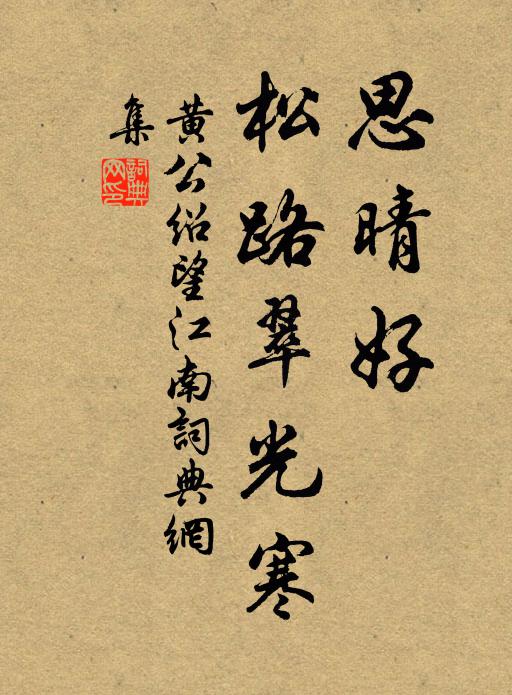 思晴好
松路翠光寒
黄公绍望江南詞典網
集
詞典网印